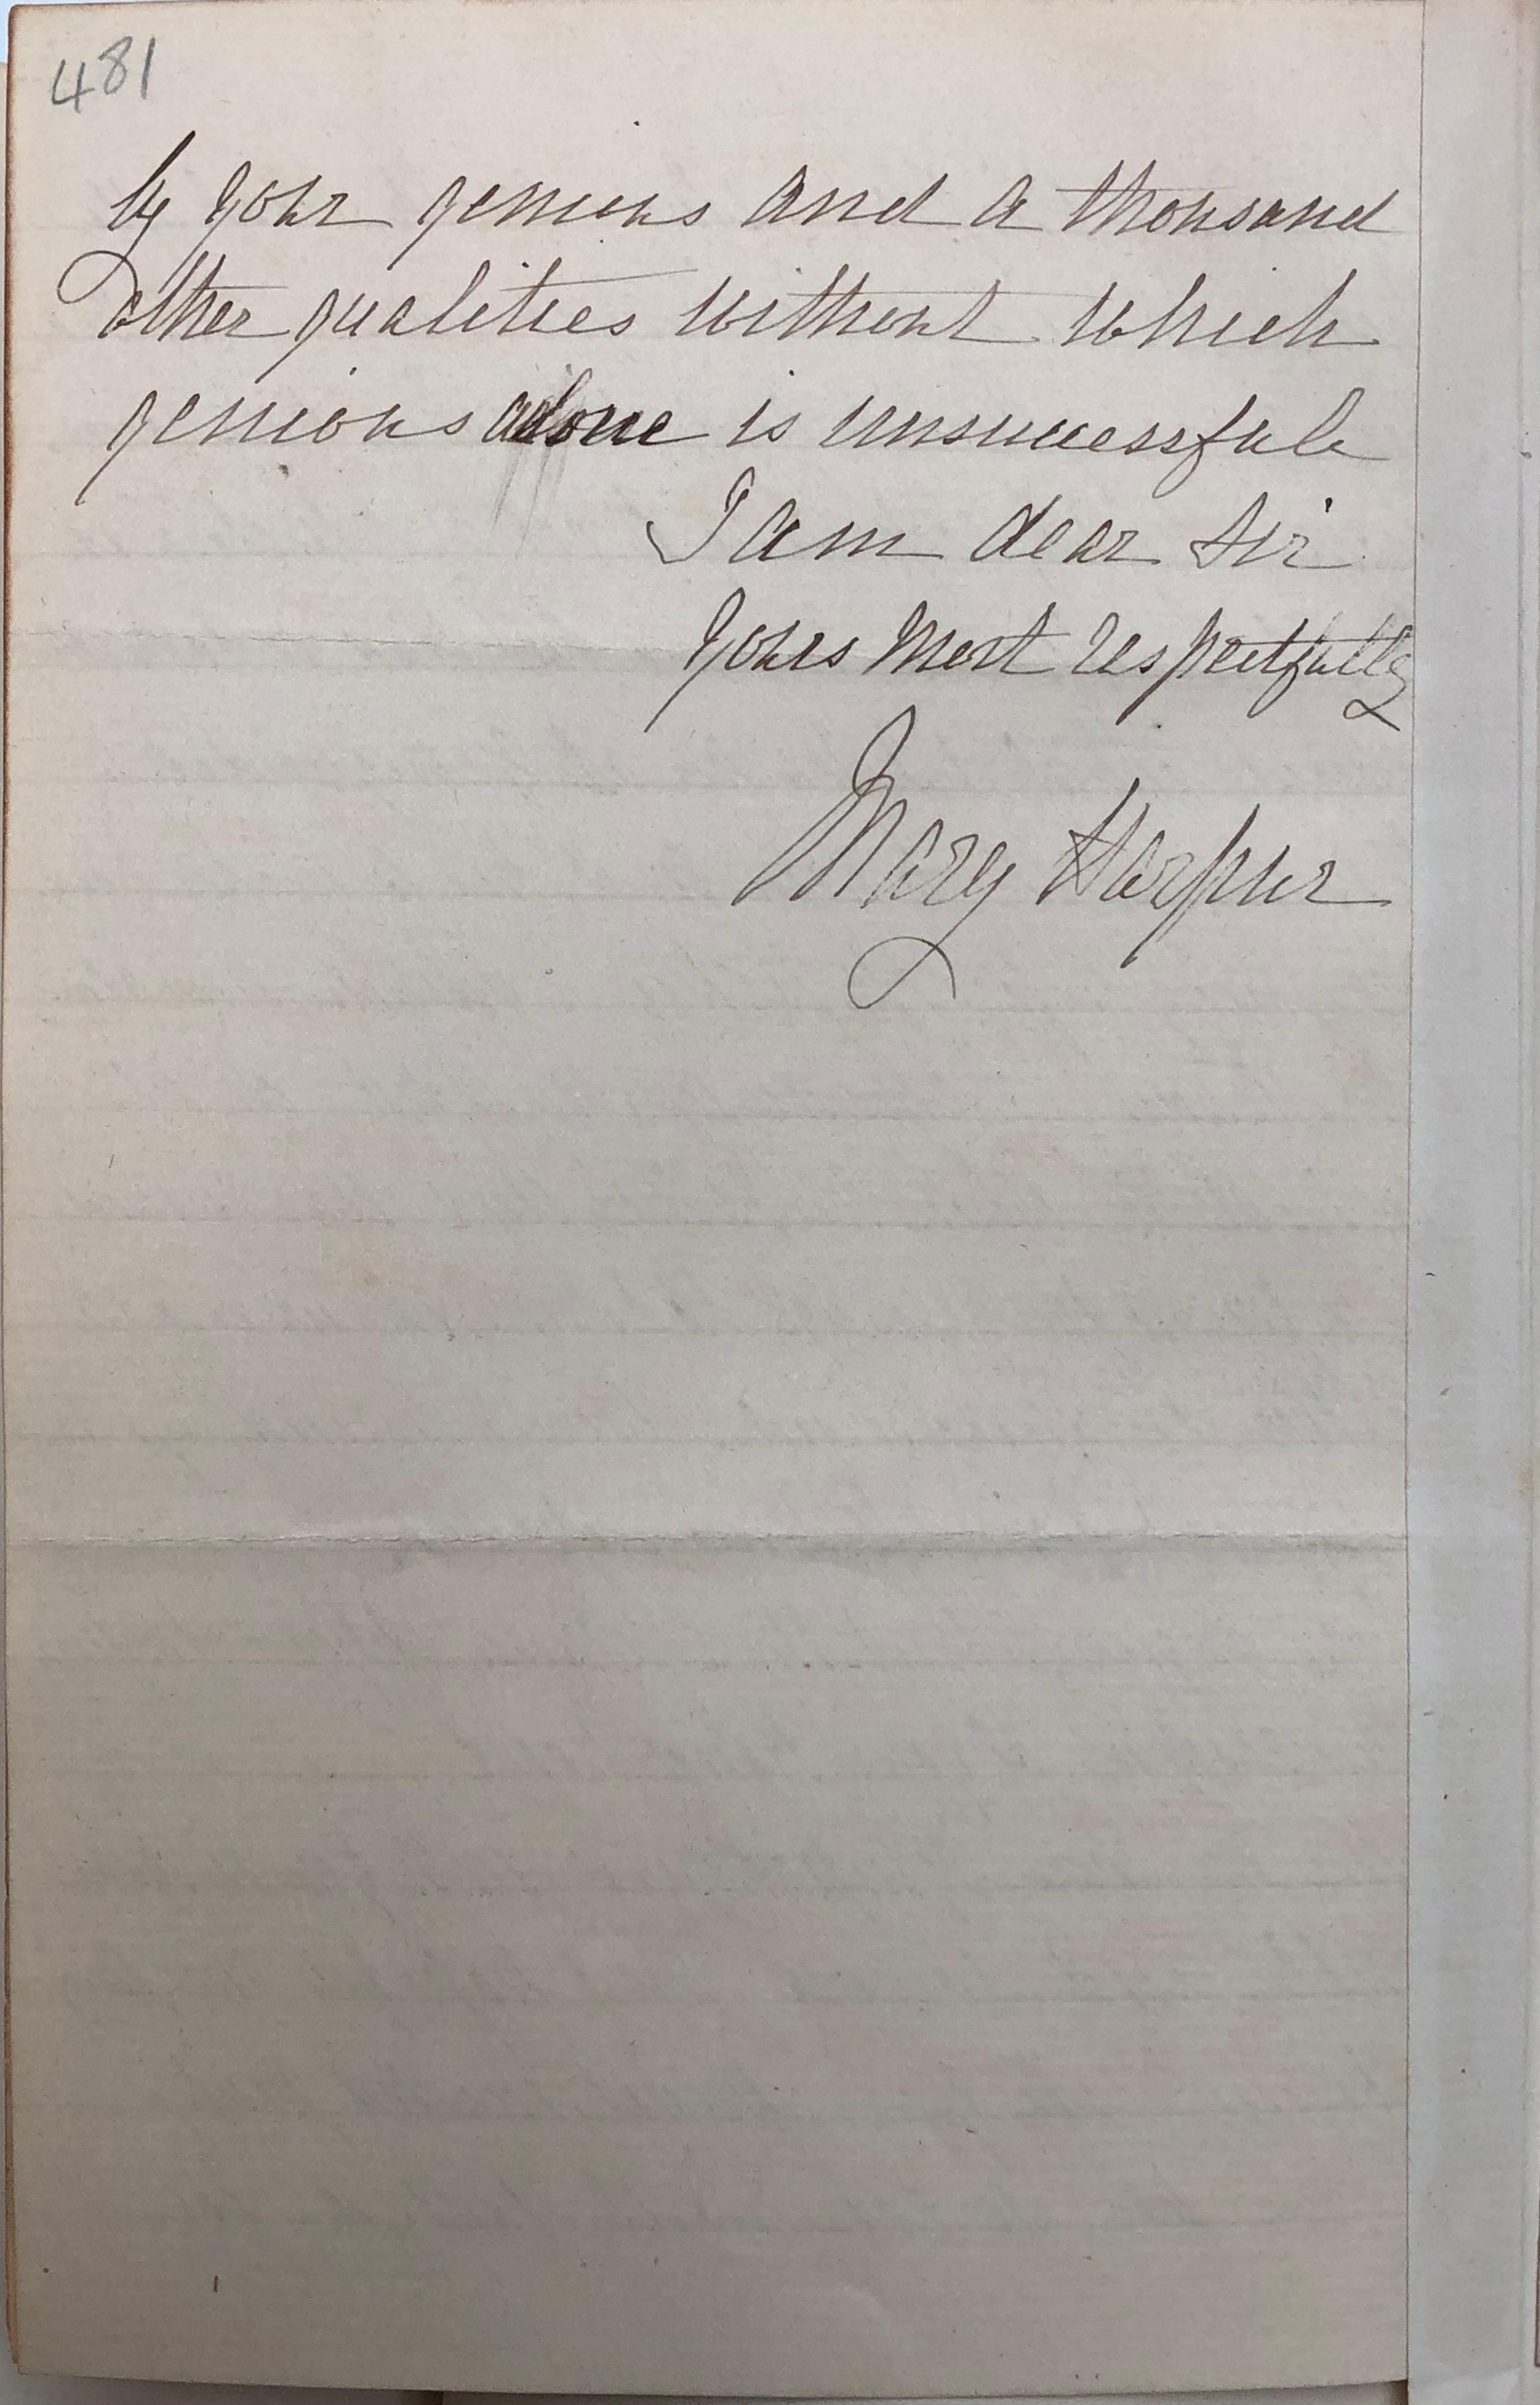 481
by your genius and a thousand
other qualities without which
genious alone is unsuccessful
I am dear Sir
Yours most respectfully
Mary Harpur